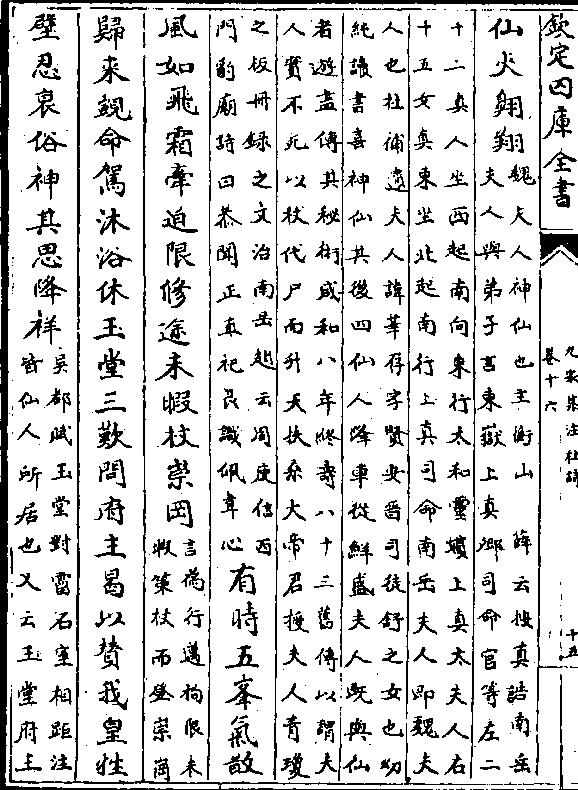 欽定四庫全書
九家集注杜詩
卷十六
十五
仙夾翱翔
魏夫人神仙也主衡山 薛云按真誥南岳
夫人與弟子言東嶽上真卿司命官等左二
十二真人坐西起南向東行太和靈嬪上真太夫人右
十五女真東坐北起南行上真司命南岳夫人即魏夫
人也杜補遺夫人諱華存字賢安晉司徒舒之女也幼
純讀書喜神仙其後四仙人降車從鮮盛夫人既與仙
者遊盡傳其秘術咸和八年終壽八十三舊傳以謂夫
人實不死以杖代尸而升天扶桑大帝君授夫人青瓊
之板冊錄之文治南岳趙云周庾信西
門豹廟詩曰恭聞正直祀良識佩韋心
有時五峯氣散
風如飛霜牽迫限修途未暇杖崇岡
言為行邁拘限未
暇策杖而登崇岡
歸來覬命駕沐浴休玉堂三歎問府主曷以贊我皇牲
璧忍衰俗神其思降祥
吳都賦玉堂對霤石室相距注
皆仙人所居也又云玉堂府主